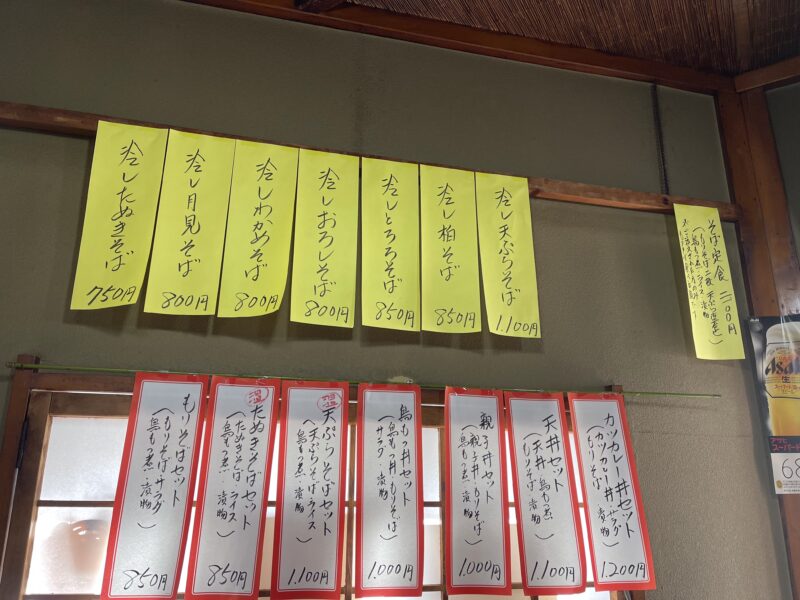 冷したぬきそば
750円
冷し月見そば
800円
冷しわかめそば
800円
冷しおろしそば
800円
冷しとろろそば
850円
冷し柏そば
850円
冷し天ぷらそば
1.100円
そば定食
(もりそば二枚 天ぷら
鳥もつ煮 ライス 漬物
もりそばセット
(もりそば サラダ
鳥もつ煮 漬物)
850円
温
たぬきそばセット
(たぬきそば ライス
鳥もつ煮 漬物)
850円
温
天ぷらそばセット
(天ぷらそば ライス
鳥もつ煮 漬物)
1.100円
鳥もつ丼セット
(鳥もつ丼 もりそば
サラダ 漬物)
1.000円
親子丼セット
(親子丼 もりそば
鳥もつ煮 漬物)
1.000円
天丼セット
(天丼 鳥もつ煮
もりそば 漬物)
1.100円
カツカレー丼セット
(カツカレー丼 サラダ
もりそば 漬物)
1.200円
Asahi
生
アサヒ
スーパー
68